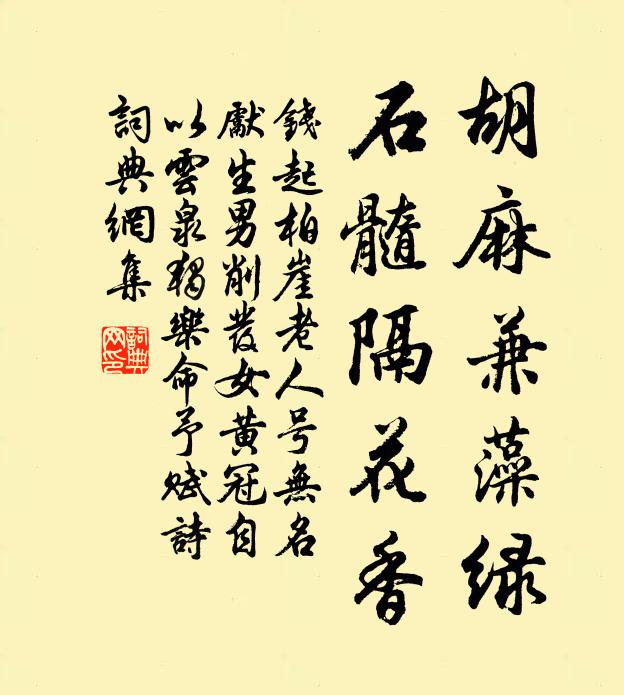 胡麻兼藻绿
石髓隔花香
錢起柏崖老人号無名
獻生男削發女黄冠自
以雲泉獨樂命予賦詩
詞典網集
詞典
网印